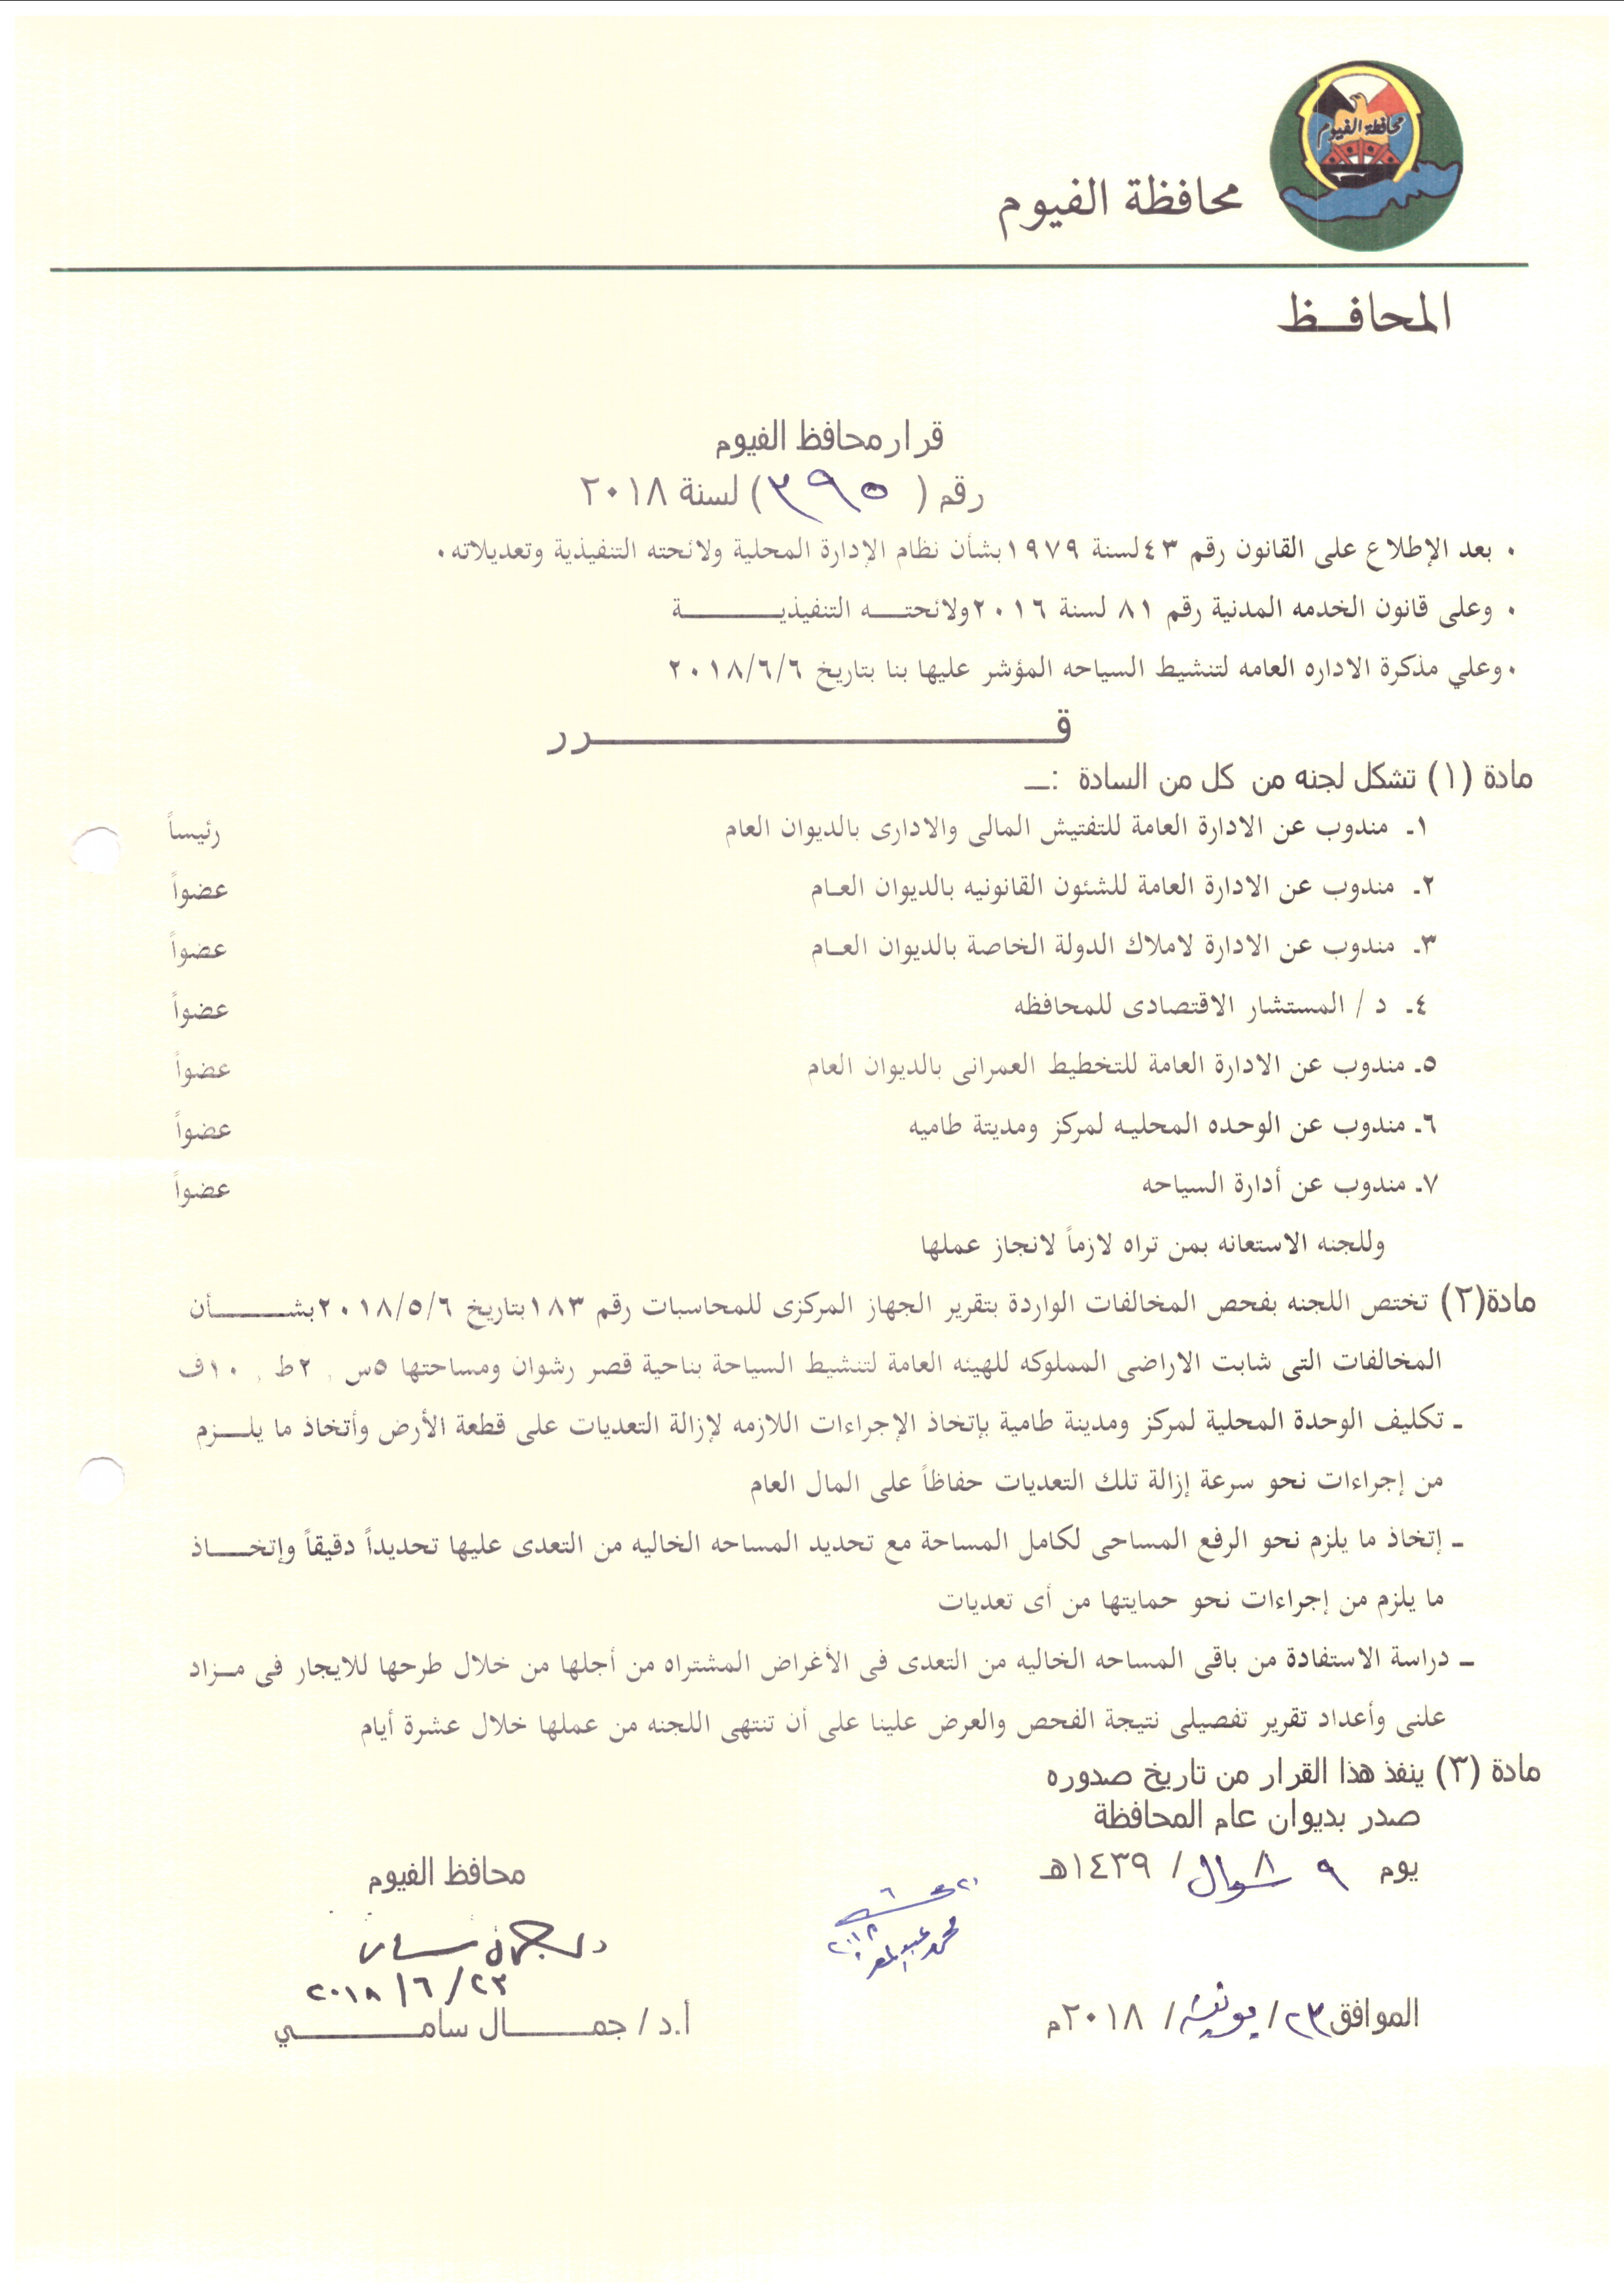 محافظة الفيوم
محافظة الفيوم
المحافــظ
قرار محافظ الفيوم
رقم ( ٣٩٥ ) لسنة ٢٠١٨
• بعد الإطلاع على القانون رقم ٤٣ لسنة ١٩٧٩ بشأن نظام الإدارة المحلية ولائحته التنفيذية وتعديلاته .
• وعلى قانون الخدمه المدنية رقم ٨١ لسنة ٢٠١٦ ولائحتـــه التنفيذيـــــــــــة
• وعلي مذكرة الاداره العامه لتنشيط السياحه المؤشر عليها بنا بتاريخ ٢٠١٨/٦/٦
قــــــــــــــــــــــرر
مادة (١) تشكل لجنه من كل من السادة :ــ
١ـ مندوب عن الادارة العامة للتفتيش المالى والادارى بالديوان العام رئيساً
٢ـ مندوب عن الادارة العامة للشئون القانونيه بالديوان العـام عضواً
٣ـ مندوب عن الادارة لاملاك الدولة الخاصة بالديوان العـام عضواً
٤ـ د / المستشار الاقتصادى للمحافظه عضواً
٥ـ مندوب عن الادارة العامة للتخطيط العمرانى بالديوان العام عضواً
٦ـ مندوب عن الوحده المحليـه لمركز ومديتة طاميه عضواً
٧ـ مندوب عن أدارة السياحه عضواً
وللجنه الاستعانه بمن تراه لازماً لانجاز عملها
مادة(٢) تختص اللجنه بفحص المخالفات الواردة بتقرير الجهاز المركزى للمحاسبات رقم ١٨٣ بتاريخ ٢٠١٨/٥/٦ بشـــــــأن
المخالفات التى شابت الاراضى المملوكه للهيئه العامة لتنشيط السياحة بناحية قصر رشوان ومساحتها ٥س , ٢ط , ١٠ف
ـ تكليف الوحدة المحلية لمركز ومدينة طامية بإتخاذ الإجراءات اللازمه لإزالة التعديات على قطعة الأرض وأتخاذ ما يلـــزم
من إجراءات نحو سرعة إزالة تلك التعديات حفاظاً على المال العام
ـ إتخاذ ما يلزم نحو الرفع المساحى لكامل المساحة مع تحديد المساحه الخاليه من التعدى عليها تحديداً دقيقاً وإتخـــاذ
ما يلزم من إجراءات نحو حمايتها من أى تعديات
ـ دراسة الاستفادة من باقى المساحه الخاليه من التعدى فى الأغراض المشتراه من أجلها من خلال طرحها للايجار فى مـزاد
علنى وأعداد تقرير تفصيلى نتيجة الفحص والعرض علينا على أن تنتهى اللجنه من عملها خلال عشرة أيام
مادة (٣) ينفذ هذا القرار من تاريخ صدوره
صدر بديوان عام المحافظة
يوم ٩ / شوال / ١٤٣٩هـ
محافظ الفيوم
٢٣ / ٦ / ٢٠١٨
الموافق ٢٣ / يونيه / ٢٠١٨م
أ.د / جمـــــــال سامـــــــــي